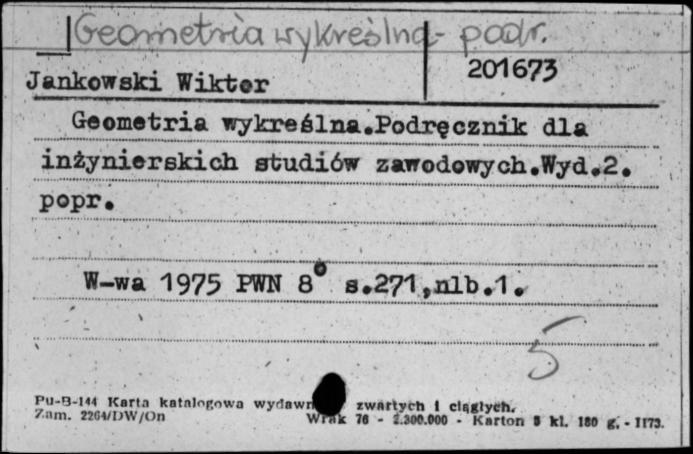 Geometria wykreślna - podr.
201673
Jankowski Wiktor
Geometria wykreślna.Podręcznik dla
inżynierskich studiów zawodowych.Wyd.2.
popr.
W-wa 1975 PWN 8° s.271,nlb.1.
5
Pu-B-144 Karta katalogowa zwartych i ciągłych.
Zam. 2264/DW/On Wrak 76 - 2.300.000 - Karton 3 kl. 180 g. - 1173.